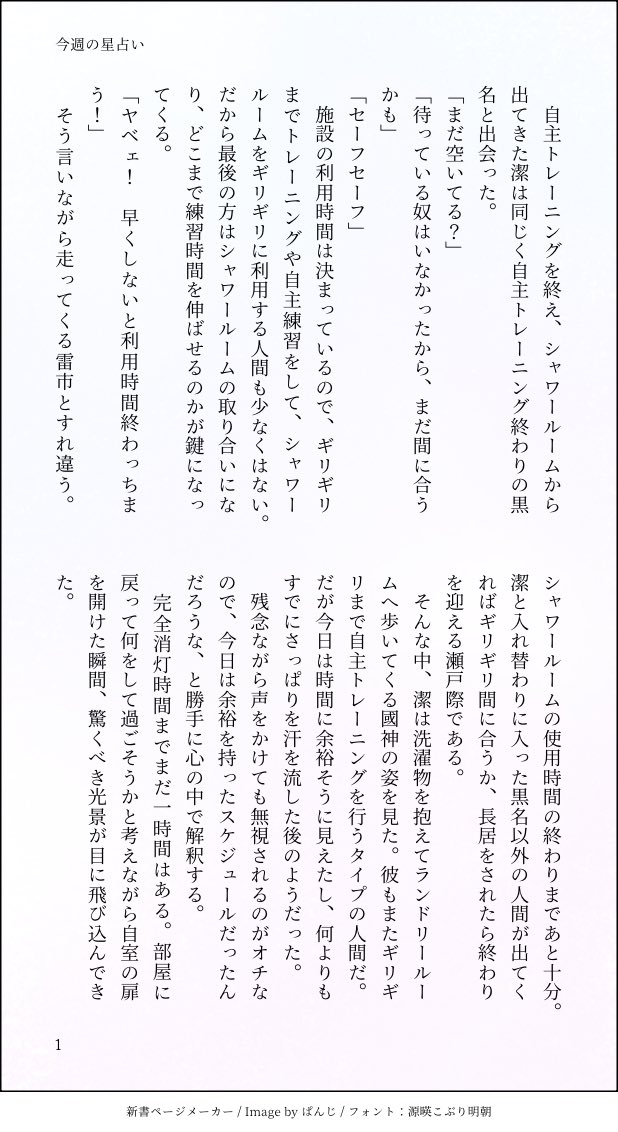 今週の星占い
　自主トレーニングを終え、シャワールームから
出てきた潔は同じく自主トレーニング終わりの黒
名と出会った。
「まだ空いてる？」
「待っている奴はいなかったから、まだ間に合う
かも」
「セーフセーフ」
　施設の利用時間は決まっているので、ギリギリ
までトレーニングや自主練習をして、シャワー
ルームをギリギリに利用する人間も少なくはない。
だから最後の方はシャワールームの取り合いにな
り、どこまで練習時間を伸ばせるのかが鍵になっ
てくる。
「ヤベェ！　早くしないと利用時間終わっちま
う！」
　そう言いながら走ってくる雷市とすれ違う。
シャワールームの使用時間の終わりまであと十分。
潔と入れ替わりに入った黒名以外の人間が出てく
ればギリギリ間に合うか、長居をされたら終わり
を迎える瀬戸際である。
　そんな中、潔は洗濯物を抱えてランドリールー
ムへ歩いてくる國神の姿を見た。彼もまたギリギ
リまで自主トレーニングを行うタイプの人間だ。
だが今日は時間に余裕そうに見えたし、何よりも
すでにさっぱりを汗を流した後のようだった。
　残念ながら声をかけても無視されるのがオチな
ので、今日は余裕を持ったスケジュールだったん
だろうな、と勝手に心の中で解釈する。
　完全消灯時間までまだ一時間はある。部屋に
戻って何をして過ごそうかと考えながら自室の扉
を開けた瞬間、驚くべき光景が目に飛び込んでき
た。
1
新書ページメーカー / Image by ぱんじ / フォント：源暎こぶり明朝